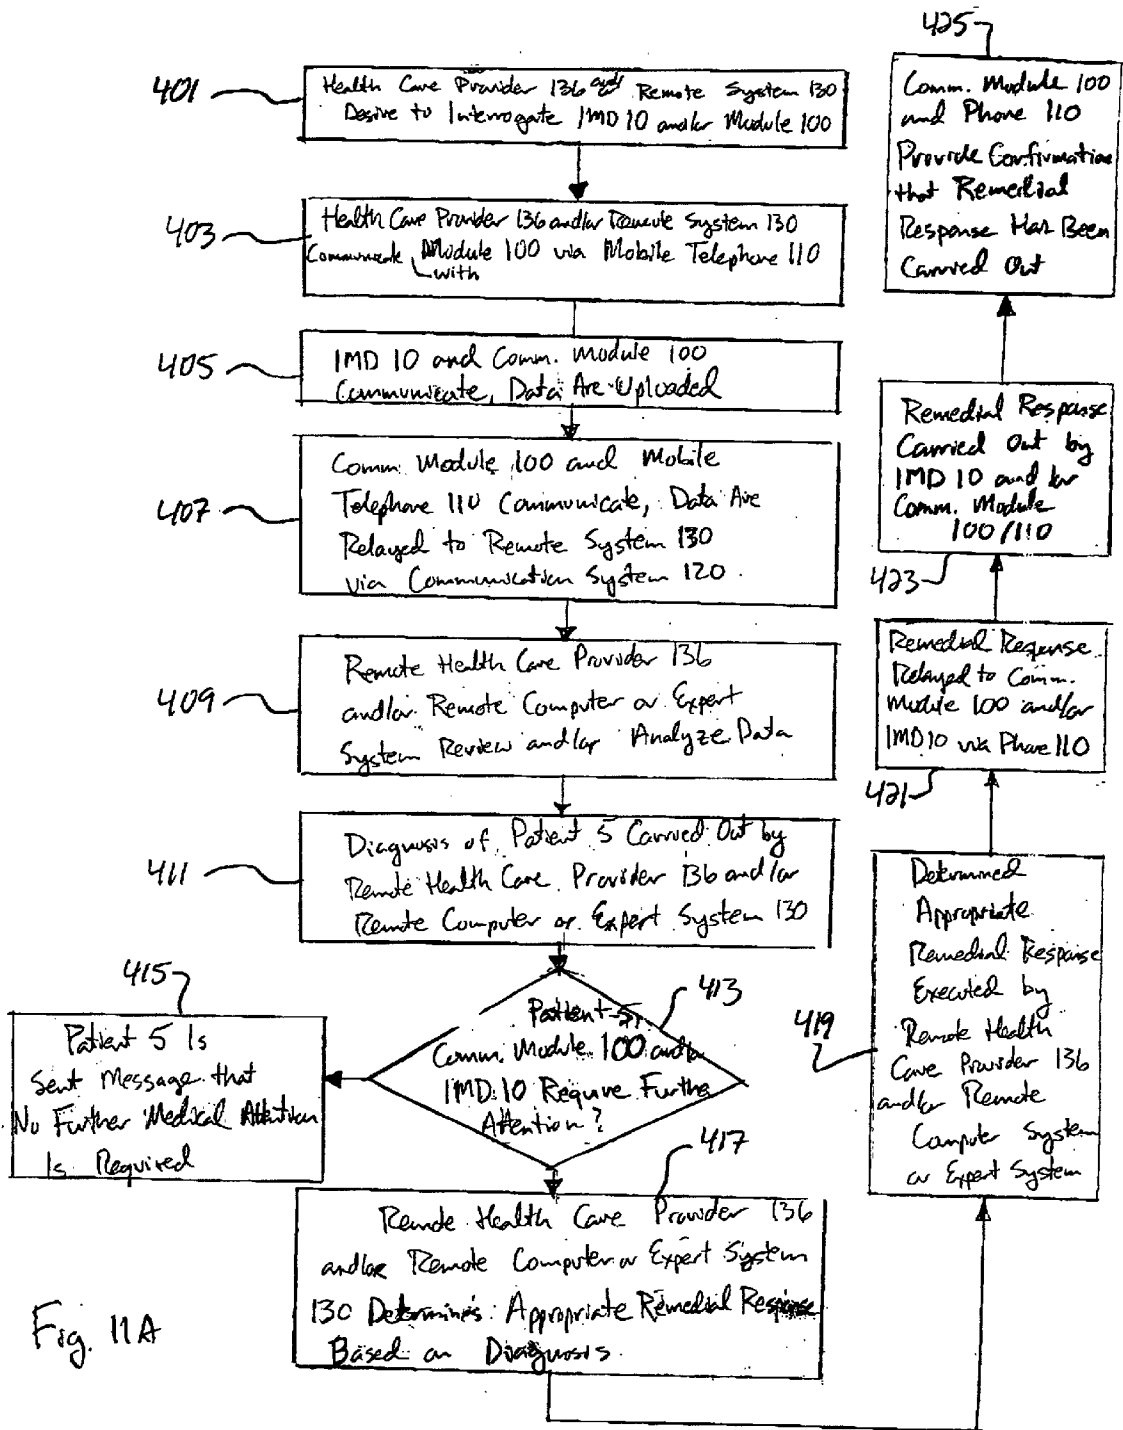 401
Health Care Provider 136 and/ Remote System 130
Desire to Interrogate IMD 10 and/or Module 100
403
Health Care Provider 136 and/or Remote System 130
Communicate with Module 100 via Mobile Telephone 110
405
IMD 10 and Comm. Module 100
Communicate, Data Are Uploaded
407
Comm. Module 100 and Mobile
Telephone 110 Communicate, Data Are
Relayed to Remote System 130
via Communication System 120.
409
Remote Health Care Provider 136
and/or Remote Computer or Expert
System Review and/or Analyze Data
411
Diagnosis of Patient 5 Carried Out by
Remote Health Care Provider 136 and/or
Remote Computer or Expert System 130
413
Patient 5,
Comm. Module 100 and/or
IMD 10 Require Further
Attention?
415
Patient 5 Is
Sent Message that
No Further Medical Attention
Is Required
417
Remote Health Care Provider 136
and/or Remote Computer or Expert System
130 Determines Appropriate Remedial Response
Based on Diagnosis.
419
Determined
Appropriate
Remedial Response
Executed by
Remote Health
Care Provider 136
and/or Remote
Computer System
or Expert System
421
Remedial Response
Relayed to Comm.
Module 100 and/or
IMD 10 via Phone 110
423
Remedial Response
Carried Out by
IMD 10 and/or
Comm. Module
100/110
425
Comm. Module 100
and Phone 110
Provide Confirmation
that Remedial
Response Has Been
Carried Out
Fig. 11A